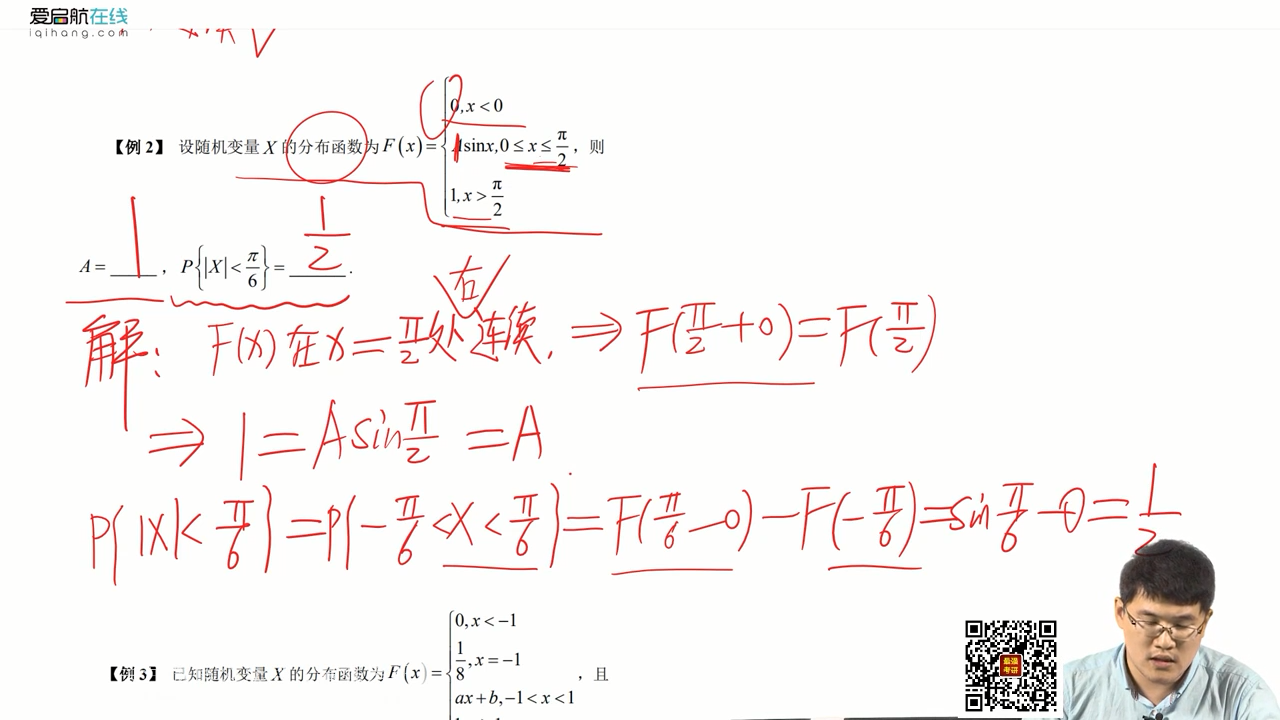 爱启航在线
iqihang.com
【例2】 设随机变量 X 的分布函数为 F(x) = { 0, x < 0
A sin x, 0 ≤ x ≤ π/2 , 则
1, x > π/2
A = 1 , P{|X| < π/6} = 1/2 .
右
解: F(x) 在 x = π/2 处 连续, ⇒ F(π/2 + 0) = F(π/2)
⇒ 1 = A sin π/2 = A
P{|X| < π/6} = P{-π/6 < X < π/6} = F(π/6 - 0) - F(-π/6) = sin π/6 - 0 = 1/2
【例3】 已知随机变量 X 的分布函数为 F(x) = { 0, x < -1
1/8, x = -1 , 且
ax + b, -1 < x < 1